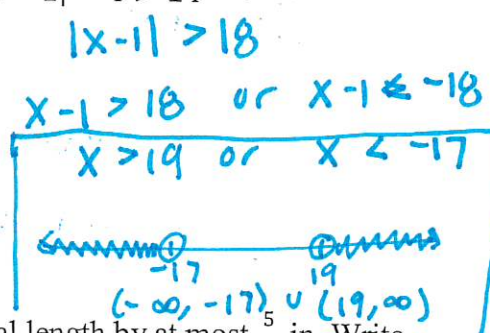 |x-1| > 18
x-1 > 18 or x-1 < -18
x > 19 or x < -17
-17 19
(-∞, -17) ∪ (19, ∞)
al length by at most 5 in. Write